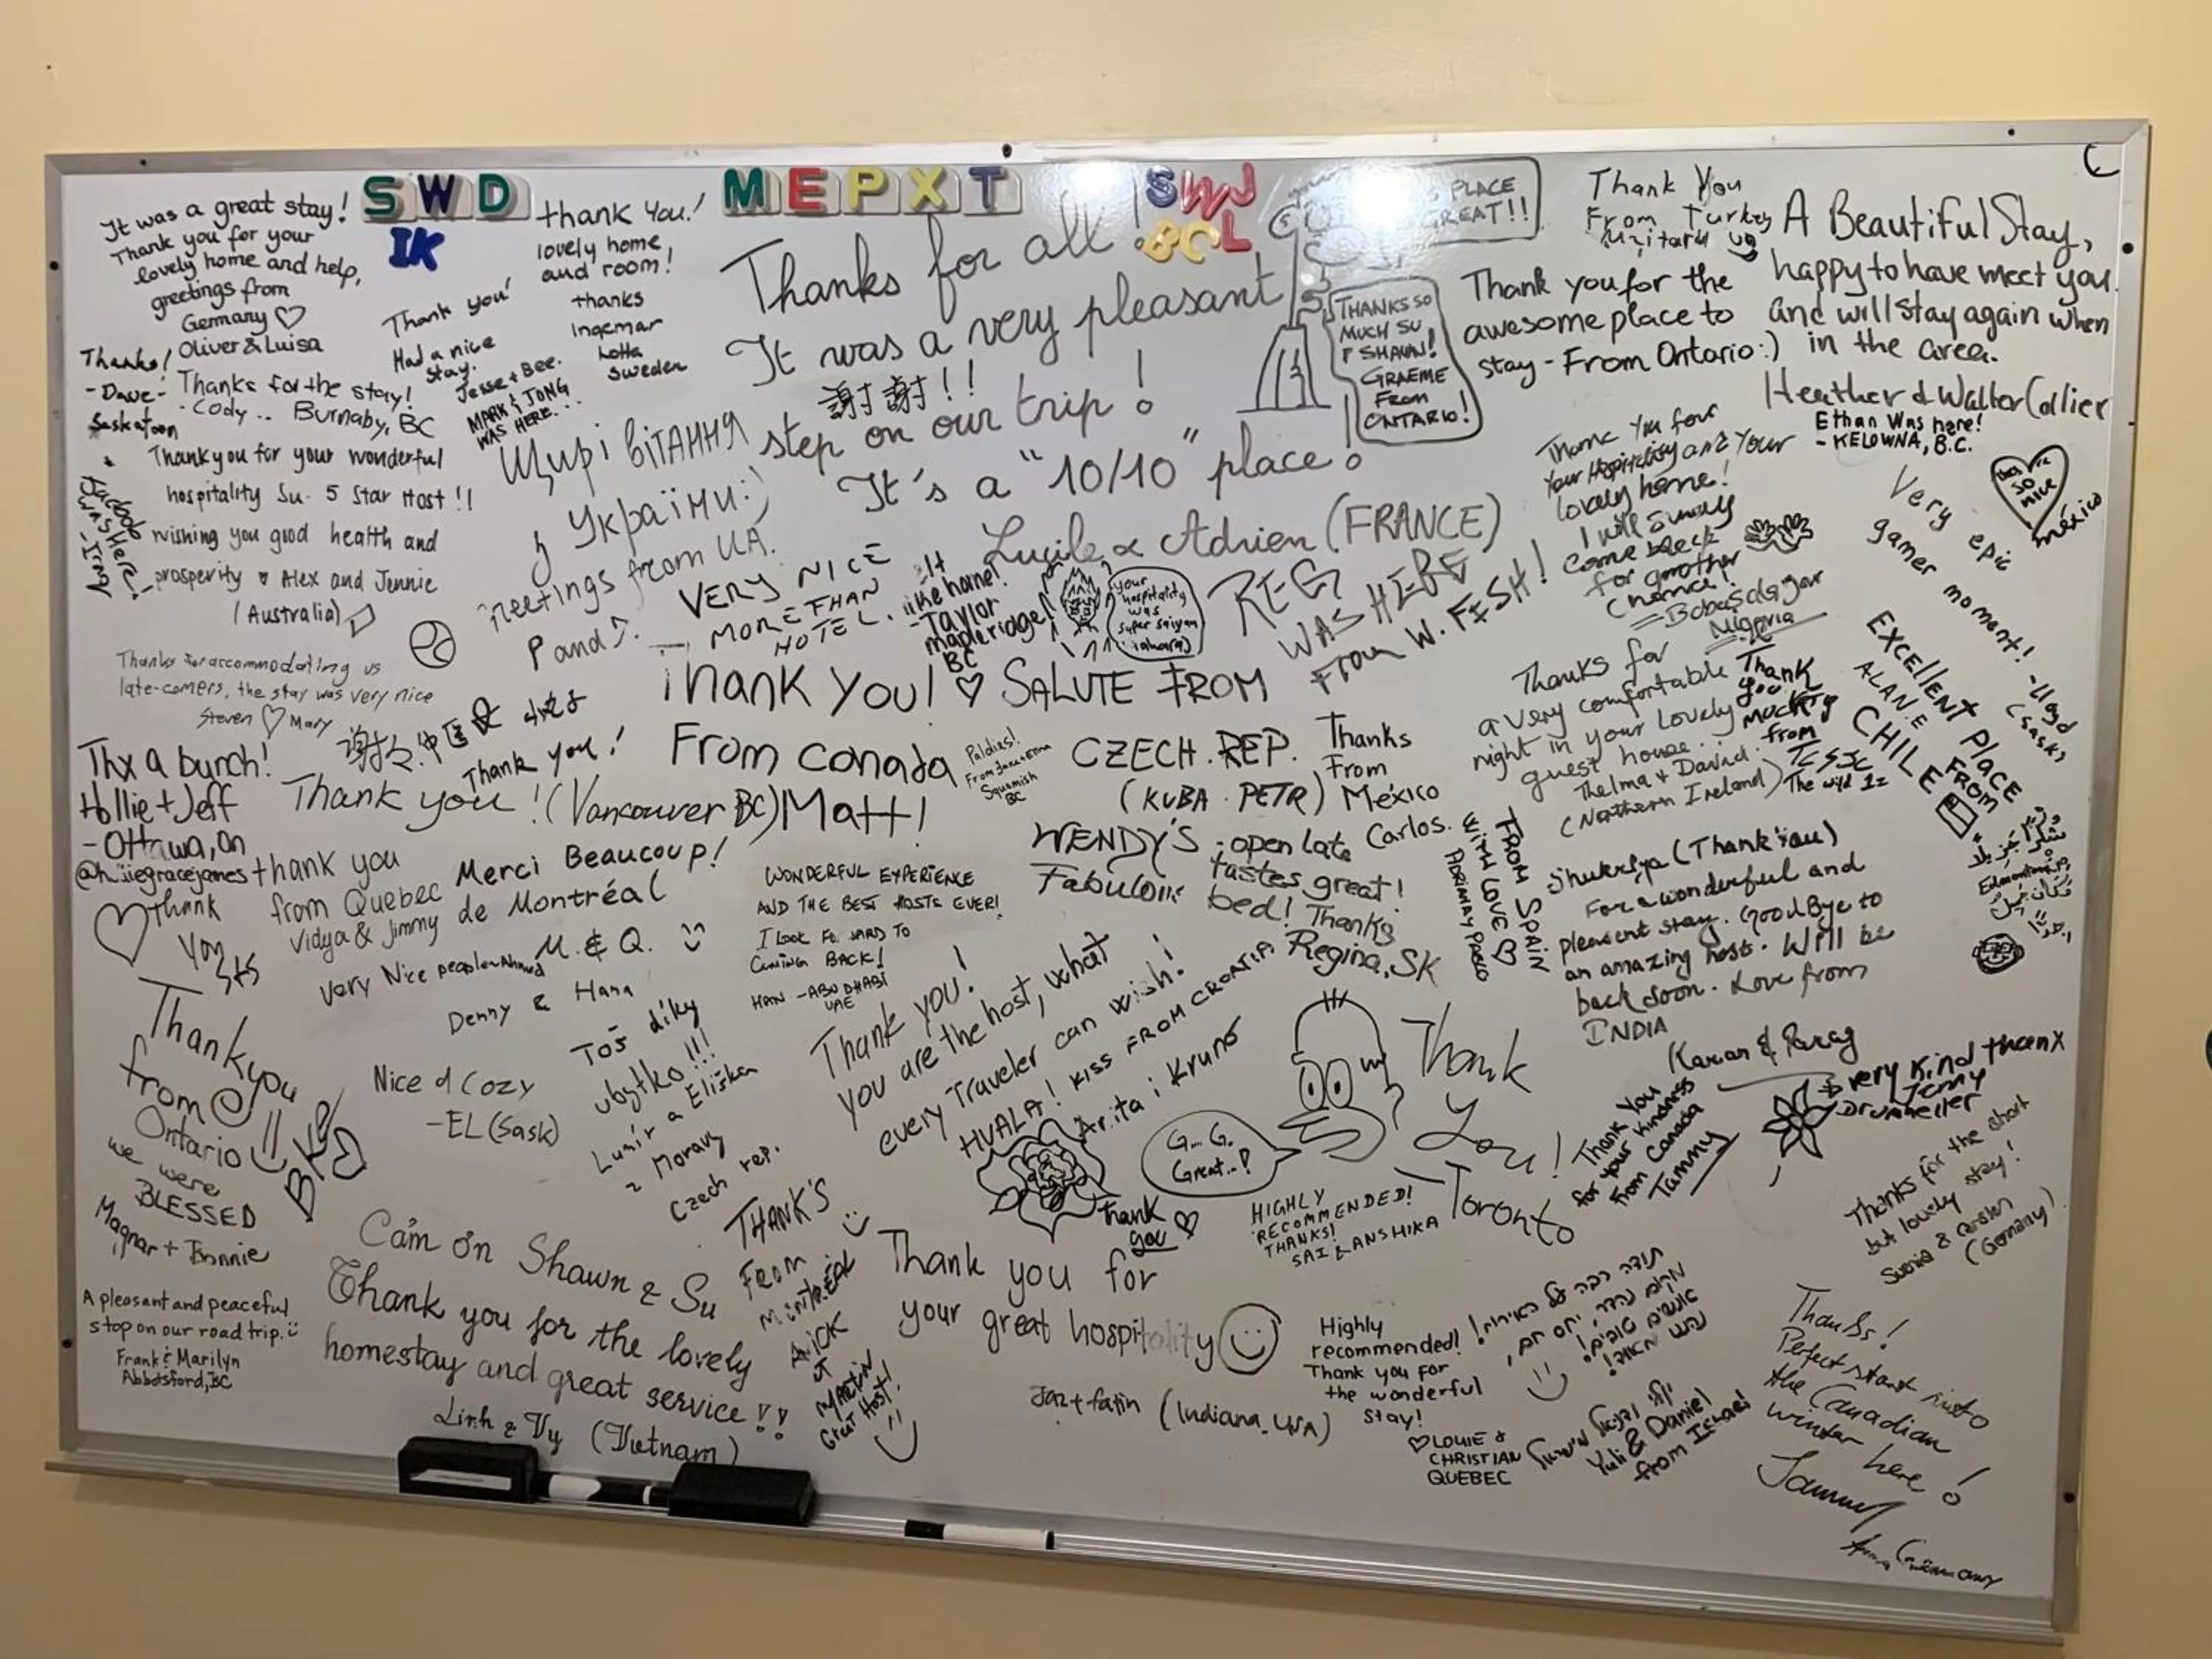 It was a great stay!
Thank you for your
lovely home and help,
greetings from
Germany
Oliver & Luisa
SWD
IK
MEPXT
SWJ
BCL
thank you!
lovely home
and room!
thanks
Ingemar
Lotta
Sweden
Thank you!
Had a nice
stay.
Jesse + Bee.
MARK & JONG
WAS HERE...
Thanks!
- Dave -
Saskatoon
Thanks for the stay!
- Cody .. Burnaby, BC
Thank you for your wonderful
hospitality Su. 5 Star Host!!
wishing you good health and
prosperity Alex and Jennie
(Australia)
Thanks for all!
It was a very pleasant
謝謝!!
step on our trip!
It's a "10/10" place!
Lucile & Adrien (FRANCE)
Щирі вітання
з України :)
Greetings from UA.
PLACE
GREAT!!
THANKS SO
MUCH SU
& SHAUN!
GRAEME
FROM
ONTARIO!
Thank You
From Turkey
Thank you for the
awesome place to
stay - From Ontario :)
A Beautiful Stay,
happy to have meet you
and will stay again when
in the area.
Heather & Walter Collier
Ethan Was here!
- KELOWNA, B.C.
so
nice
méxico
Very epic
gamer moment!
- Lloyd
(Sask)
Thank You for
Your Hospitality and Your
lovely home!
I will surely
come back
for another
chance!
Nigeria
VERY NICE
MORE THAN
HOTEL.
like home!
- Taylor
mapleridge!
BC
your
hospitality
was
super saiyan
REG
WAS HERE
From W. FISH!
Thanks for accommodating us
late-comers, the stay was very nice
Steven ♡ Mary
Thank you!
From Canada
Matt!
SALUTE FROM
CZECH. REP.
(KUBA · PETR)
Paldies!
Squamish
BC
Thanks
From
México
Carlos.
Thanks for
a very comfortable
night in your lovely
guest house.
Thelma + David.
(Northern Ireland)
Thank
you
from
EXCELLENT PLACE
FROM
CHILE
Thx a bunch!
Hollie + Jeff
- Ottawa, On
Thank you!
Thank you! (Vancouver BC)
thank you
from Quebec
Vidya & Jimmy
Merci Beaucoup!
de Montréal
M. & Q.
Thank
you
Very Nice people - Ahmed
Denny & Hana
WONDERFUL EXPERIENCE
AND THE BEST HOSTS EVER!
I LOOK FORWARD TO
COMING BACK!
HAN - ABU DHABI
UAE
WENDY'S - open late
tastes great!
Fabulous bed! Thanks
Regina, SK
FROM SPAIN
WITH LOVE
Shukriya (Thank You)
For a wonderful and
pleasent stay. Good Bye to
an amazing host. Will be
back soon. Love from
INDIA
Karan & Parag
شكرا
Edmonton
Thank you
from
Ontario
we were
BLESSED
Magnar + Bonnie
Nice & Cozy
- EL (Sask)
Toš díky
Lumír a Eliška
z Moravy
Czech rep.
Thank you!
you are the host, what
every Traveler can wish!
HVALA! KISS FROM CROATIA
Arita i Kruno
G... G.
Great..!
Thank
You!
Toronto
thank
you
HIGHLY
RECOMMENDED!
THANKS!
SAI & ANSHIKA
Thank You
for your kindness
From Canada
Tammy
very kind thanx
Jenny
Drumheller
Thanks for the short
but lovely stay!
(Germany)
A pleasant and peaceful
stop on our road trip.
Frank & Marilyn
Abbotsford, BC
Cảm ơn Shawn & Su
Thank you for the lovely
homestay and great service!!
Linh & Vy (Vietnam)
THANK'S
FROM
MONTRÉAL
NICK
&
MARTIN
GREAT HOST!
Thank you for
your great hospitality
(Indiana, USA)
Highly
recommended!
Thank you for
the wonderful
stay!
LOUIE &
CHRISTIAN
QUEBEC
תודה רבה על האירוח!
מקום נהדר, יחס חם,
אנשים טובים!
Yuli & Daniel
from Israel
Thanks!
Perfect start into
the Canadian
winter here!
Germany